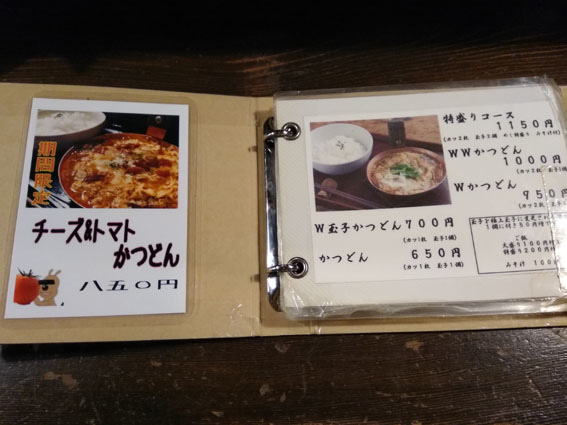 期間限定
チーズ&トマト
かつどん
八五〇円
特盛りコース
1150円
WWかつどん
1000円
Wかつどん
950円
W玉子かつどん 700円
(カツ1枚 玉子2個)
かつどん 650円
(カツ1枚 玉子1個)
1個に付き50円増
ご飯
大盛り100円
特盛り200円
みそ汁 100